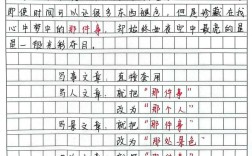 即使时间可以让很多东西褪色，但是珍藏在我
心中梦中的那件事，却始终如夜空中最亮的星
星一般光彩夺目。
写事文章，直接套用
写人文章，就把“那件事”
改为“那个人”
写景文章，就把“那件事”
改为“那处景色”